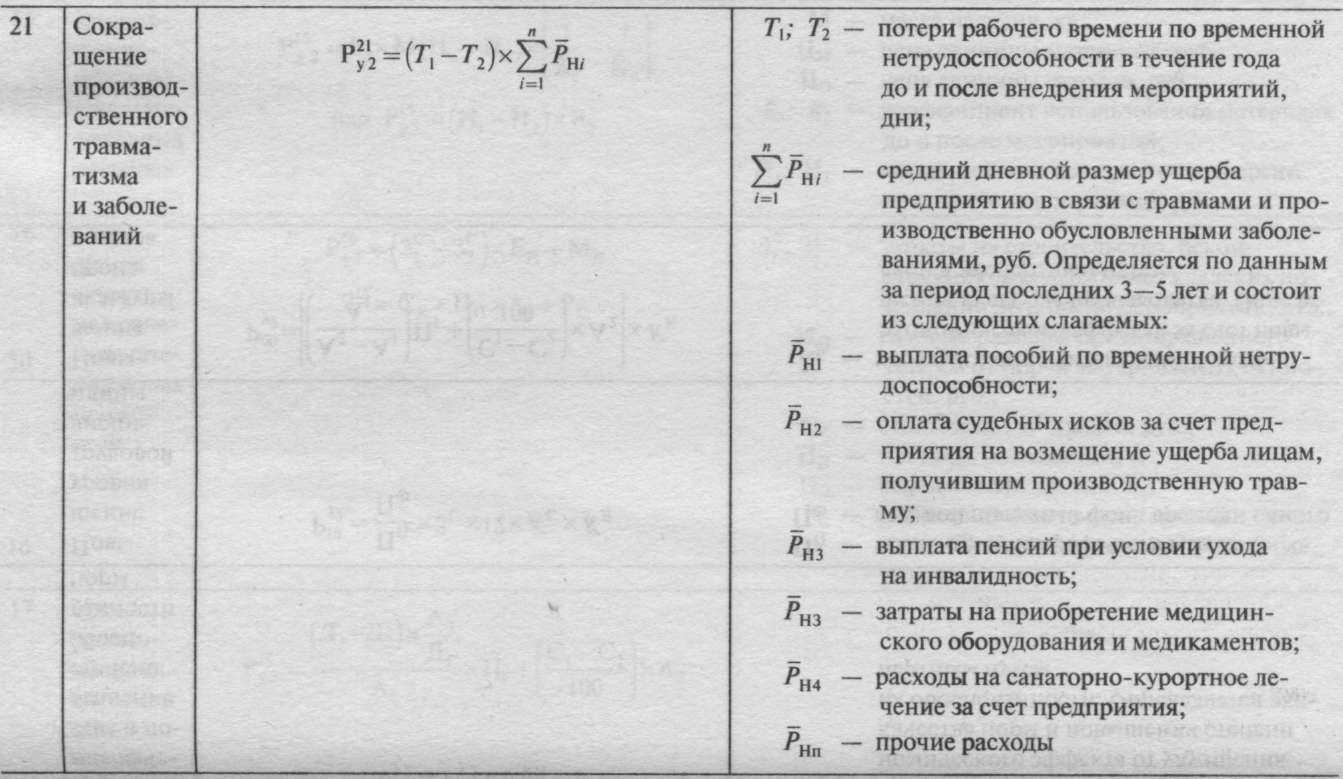 21
Сокра-
щение
производ-
ственного
травма-
тизма
и заболе-
ваний
P²¹ᵧ₂ = (T₁ − T₂) × ∑ⁿᵢ₌₁ P̅нᵢ
T₁; T₂ — потери рабочего времени по временной
нетрудоспособности в течение года
до и после внедрения мероприятий,
дни;
∑ⁿᵢ₌₁ P̅нᵢ — средний дневной размер ущерба
предприятию в связи с травмами и про-
изводственно обусловленными заболе-
ваниями, руб. Определяется по данным
за период последних 3—5 лет и состоит
из следующих слагаемых:
P̅н1 — выплата пособий по временной нетру-
доспособности;
P̅н2 — оплата судебных исков за счет пред-
приятия на возмещение ущерба лицам,
получившим производственную трав-
му;
P̅н3 — выплата пенсий при условии ухода
на инвалидность;
P̅н3 — затраты на приобретение медицин-
ского оборудования и медикаментов;
P̅н4 — расходы на санаторно-курортное ле-
чение за счет предприятия;
P̅нп — прочие расходы